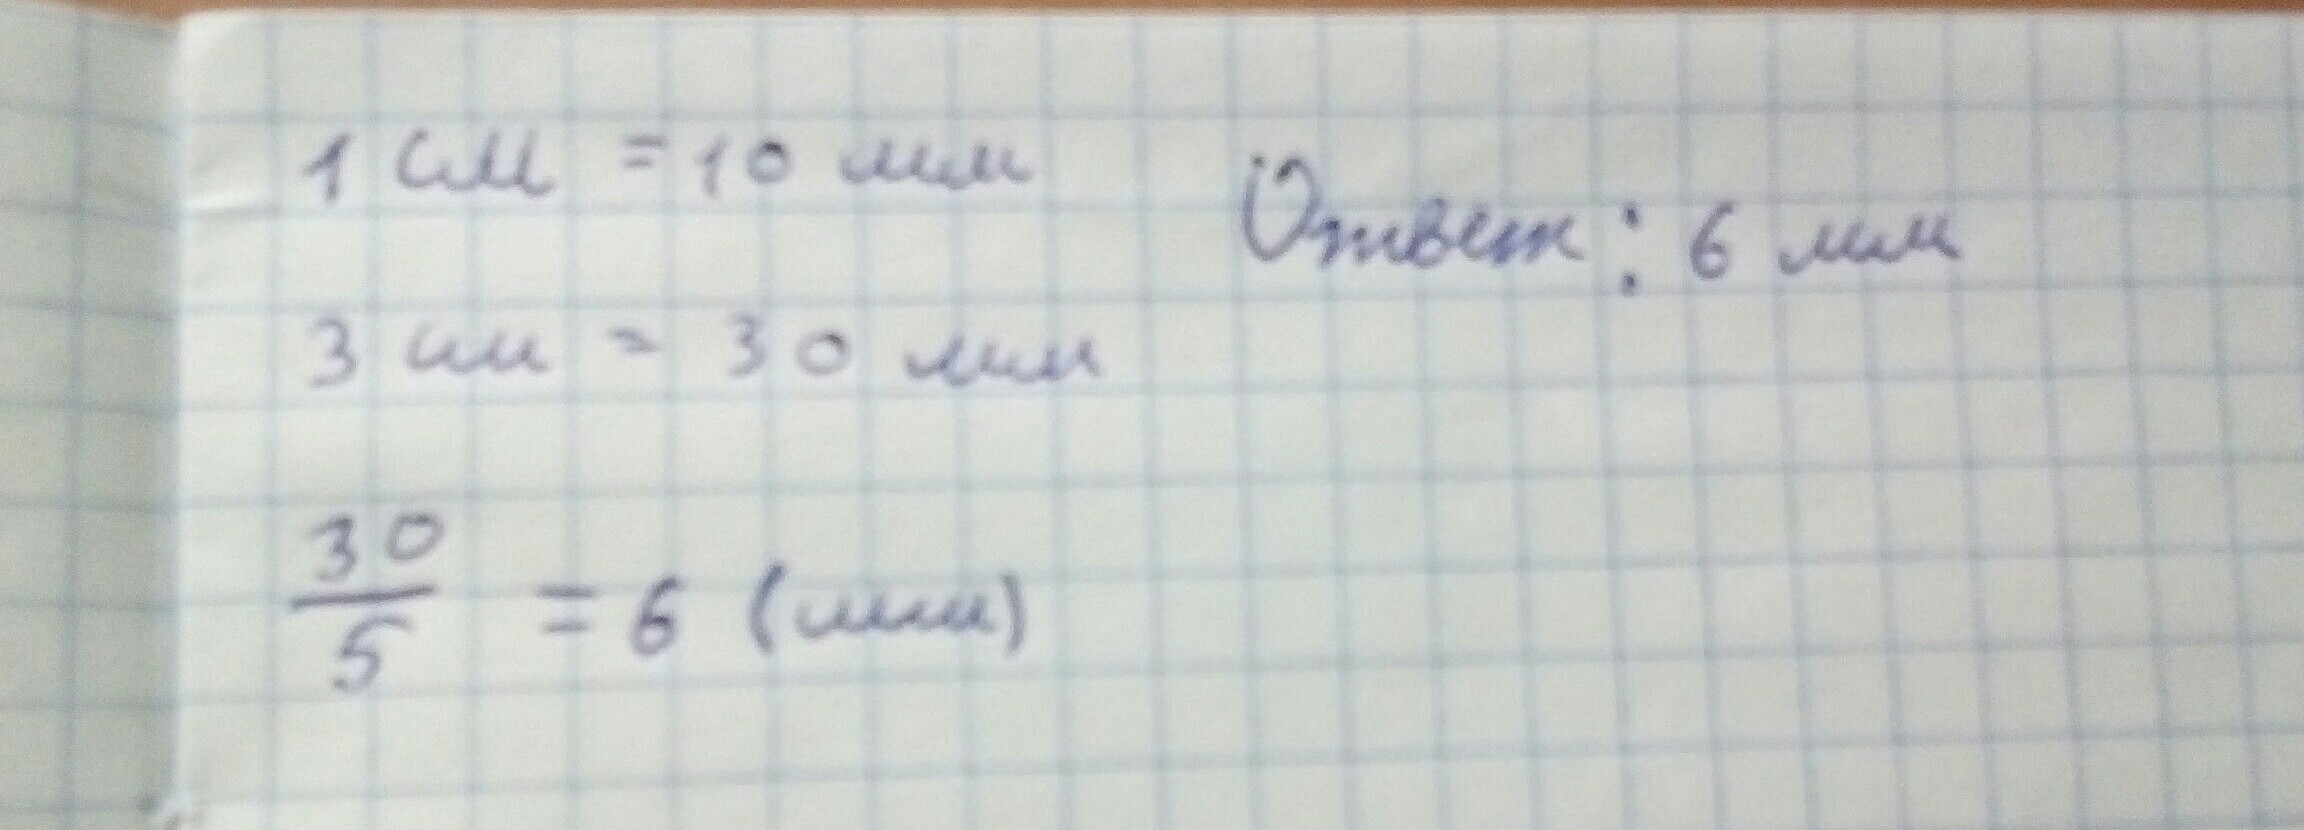 1 см = 10 мм
3 см = 30 мм
30
5
= 6 (мм)
Ответ: 6 мм